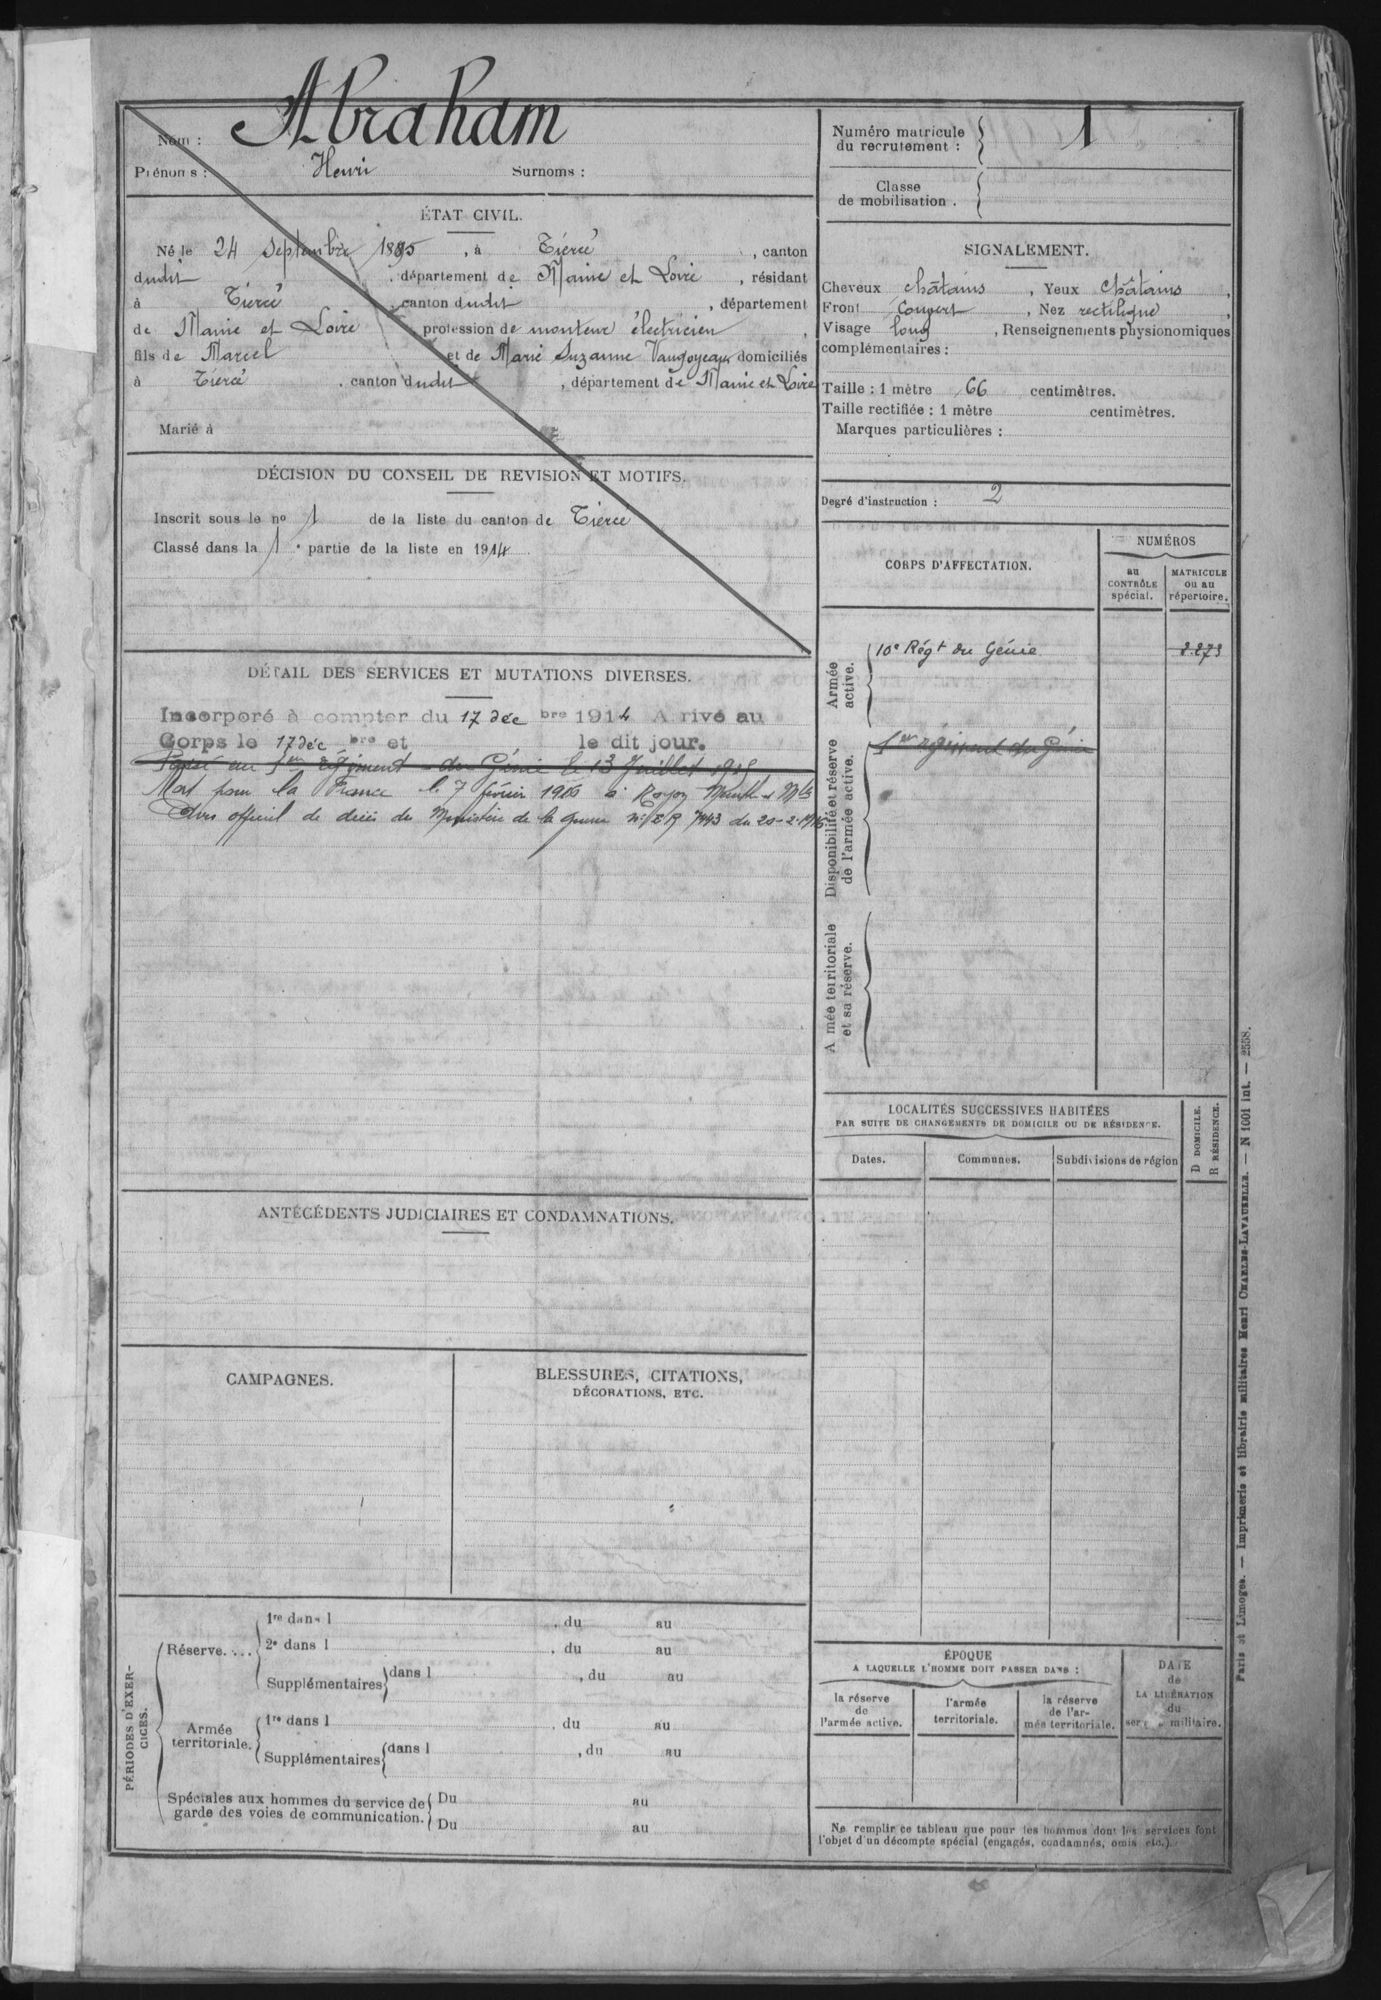 Nom : Abraham
Prénoms : Henri Surnoms :
ÉTAT CIVIL.
Né le 24 Septembre 1895, à Tiercé, canton
dudit, département de Maine et Loire, résidant
à Tiercé, canton dudit, département
de Maine et Loire, profession de monteur électricien,
fils de Marcel et de Marie Suzanne Vaugoyeau, domiciliés
à Tiercé, canton dudit, département de Maine et Loire
Marié à
DÉCISION DU CONSEIL DE REVISION ET MOTIFS.
Inscrit sous le no 1 de la liste du canton de Tiercé
Classé dans la 1e partie de la liste en 1914
DÉTAIL DES SERVICES ET MUTATIONS DIVERSES.
Incorporé à compter du 17 déc bre 1914 Arrivé au
Corps le 17 déc bre et le dit jour.
Passé au 1er régiment du Génie le 13 Juillet 1915
Mort pour la France le 7 février 1916 à
Avis officiel de décès du Ministère de la guerre No ER 7443 du 20-2-1916
ANTÉCÉDENTS JUDICIAIRES ET CONDAMNATIONS.
CAMPAGNES.
BLESSURES, CITATIONS,
DÉCORATIONS, ETC.
PÉRIODES D'EXERCICES.
Réserve....
1re dans l , du au
2e dans l , du au
Supplémentaires dans l , du au
Armée
territoriale.
1re dans l , du au
Supplémentaires dans l , du au
Spéciales aux hommes du service de
garde des voies de communication.
Du au
Du au
Numéro matricule
du recrutement : 1
Classe
de mobilisation.
SIGNALEMENT.
Cheveux châtains, Yeux châtains,
Front Couvert, Nez rectiligne,
Visage long, Renseignements physionomiques
complémentaires :
Taille : 1 mètre 66 centimètres.
Taille rectifiée : 1 mètre centimètres.
Marques particulières :
Degré d'instruction : 2
CORPS D'AFFECTATION.
NUMÉROS
au
CONTRÔLE
spécial.
MATRICULE
ou au
répertoire.
Armée
active.
10e Régt du Génie 2.273
Disponibilité et réserve
de l'armée active.
1er régiment du Génie
A mée territoriale
et sa réserve.
LOCALITÉS SUCCESSIVES HABITÉES
PAR SUITE DE CHANGEMENTS DE DOMICILE OU DE RÉSIDENCE.
D DOMICILE.
R RÉSIDENCE.
Dates. Communes. Subdivisions de région
ÉPOQUE
A LAQUELLE L'HOMME DOIT PASSER DANS :
la réserve
de
l'armée active.
l'armée
territoriale.
la réserve
de l'ar-
mée territoriale.
DATE
de
LA LIBÉRATION
du
service militaire.
Ne remplir ce tableau que pour les hommes dont les services font
l'objet d'un décompte spécial (engagés, condamnés, omis etc.).
Paris et Limoges. — Imprimerie et librairie militaires Henri CHARLES-LAVAUZELLE. — N 1001 int. — 2558.